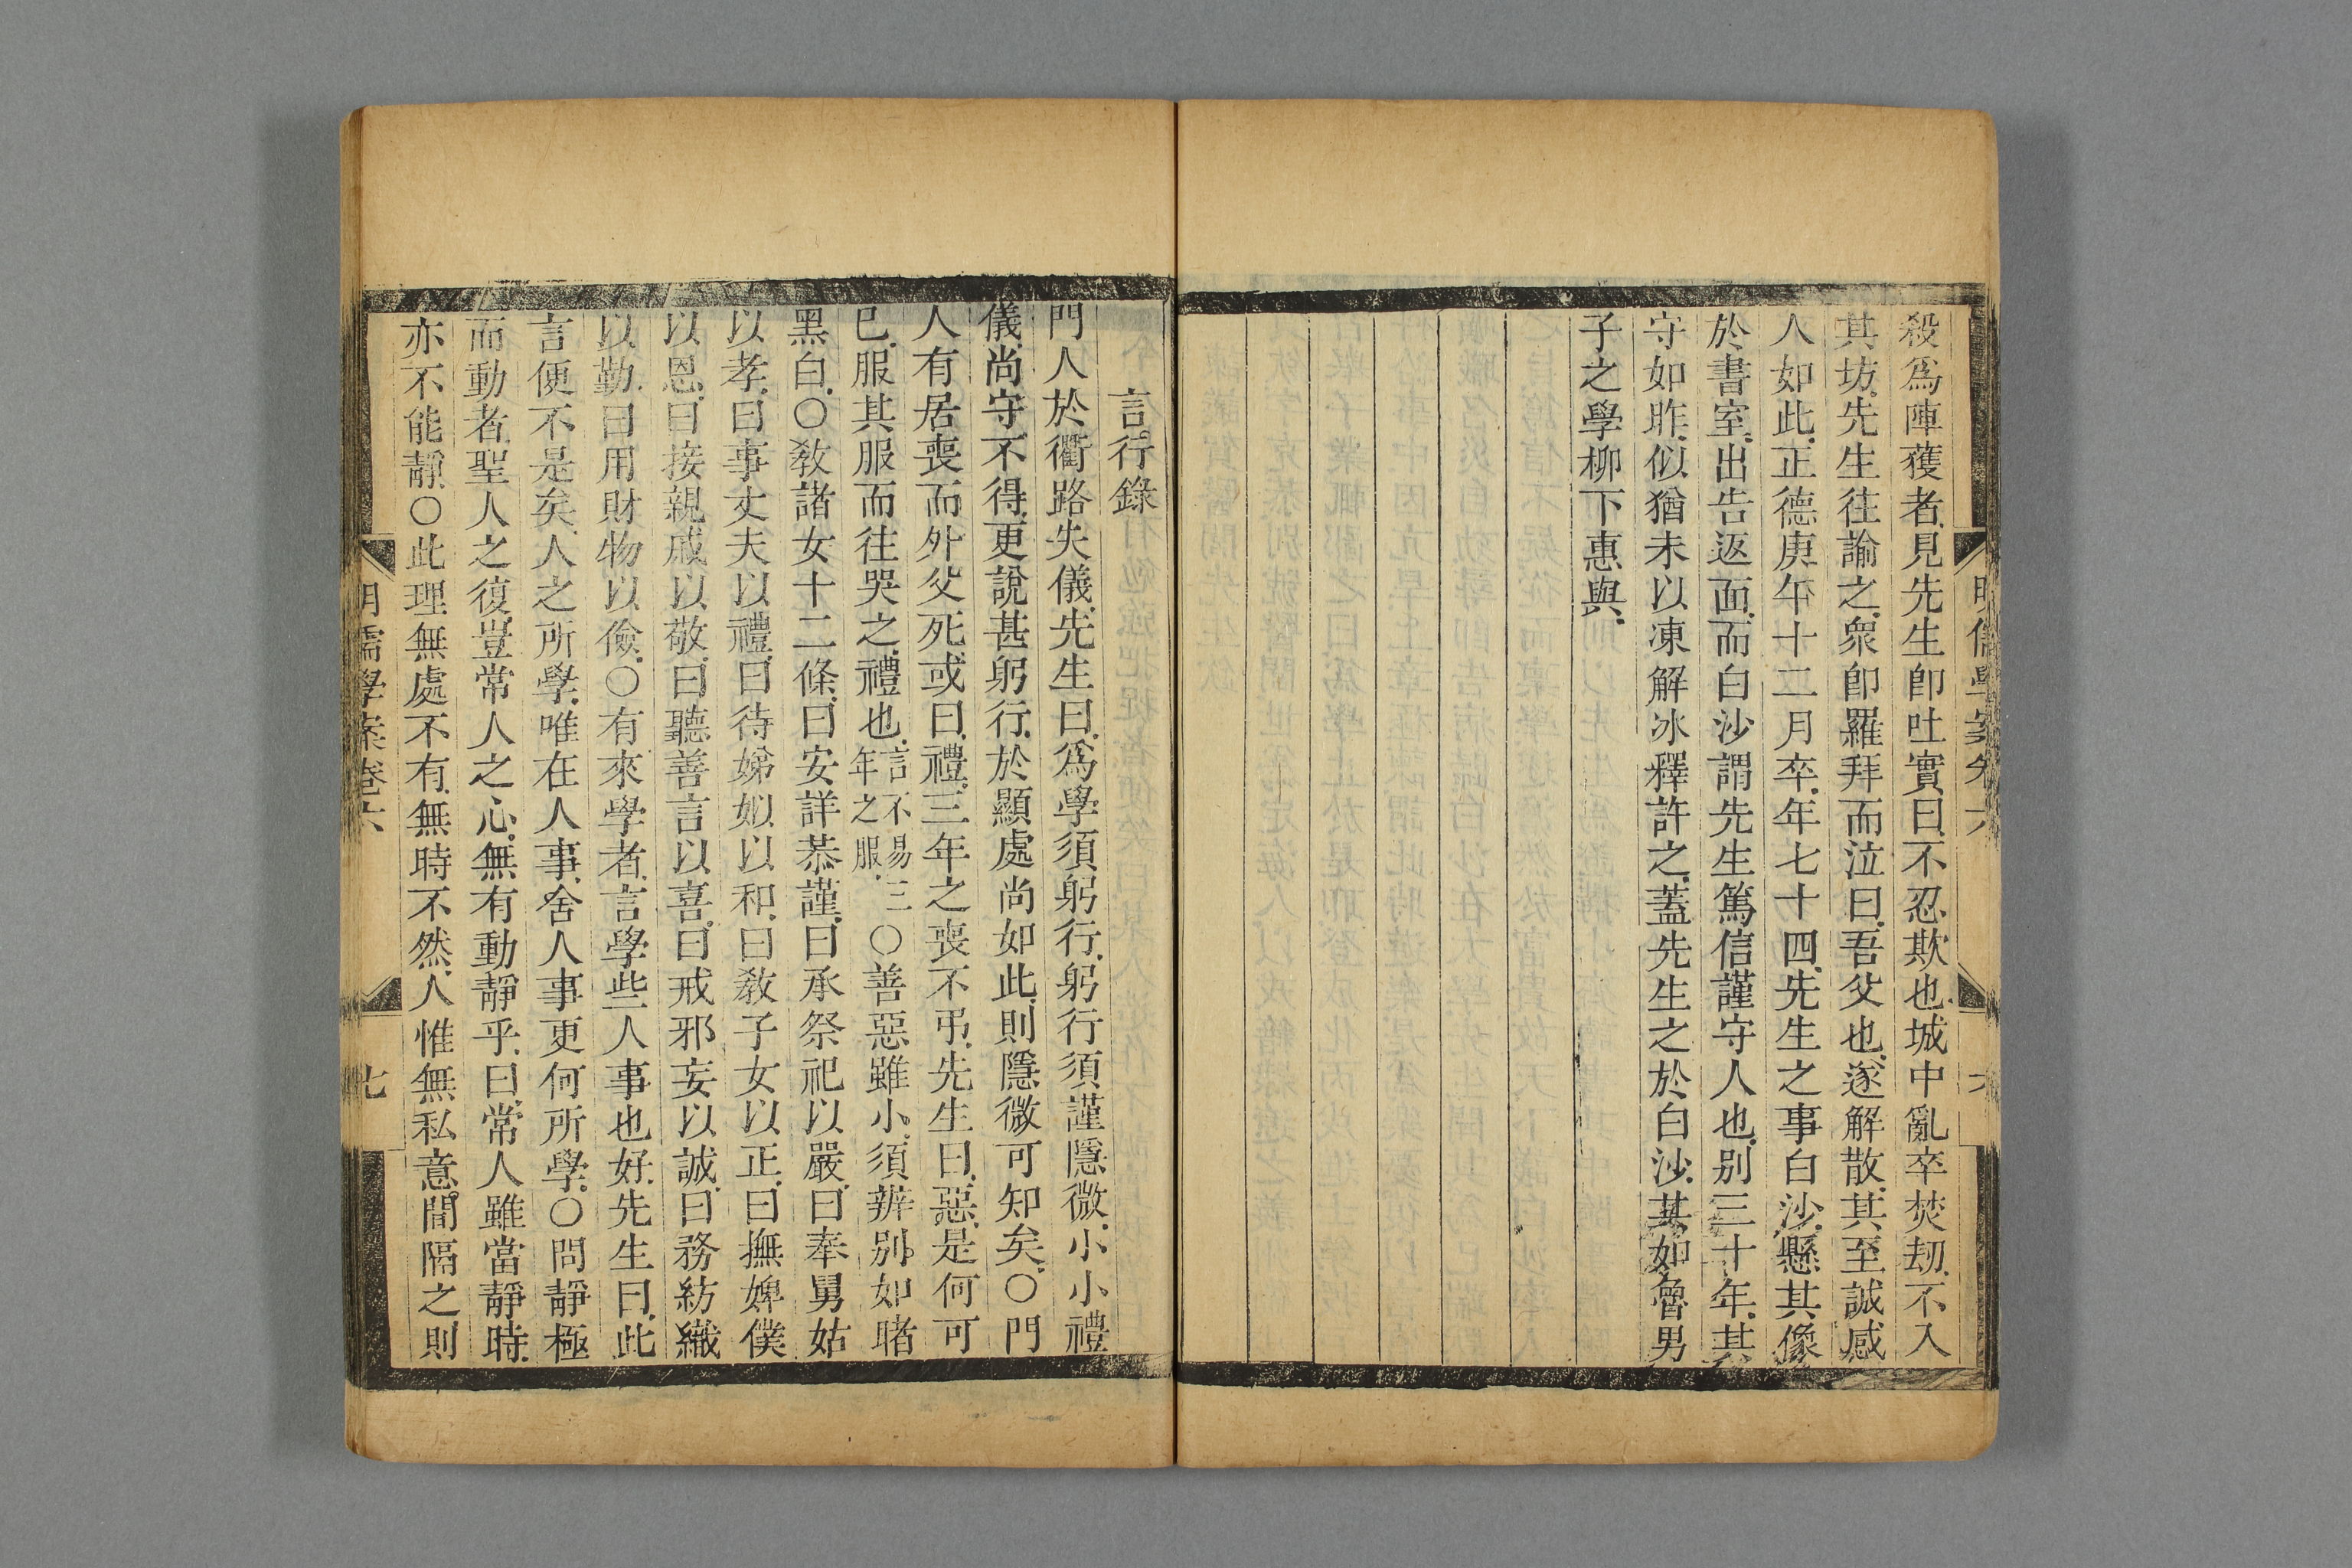 殺爲陣獲者見先生卽吐實曰不忍欺也城中亂卒焚刧不入
其坊先生往諭之衆卽羅拜而泣曰吾父也遂解散其至誠感
人如此正德庚午十二月卒年七十四先生之事白沙懸其像
於書室出告返面而白沙謂先生篤信謹守人也别三十年其
守如昨似猶未以凍解冰釋許之蓋先生之於白沙其如魯男
子之學柳下惠與
言行錄
門人於衢路失儀先生曰爲學須躬行躬行須謹隱微小小禮
儀尚守不得更說甚躬行於顯處尚如此則隱微可知矣〇門
人有居喪而外父死或曰禮三年之喪不弔先生曰惡是何可
已服其服而往哭之禮也言不易三年之服〇善惡雖小須辨别如睹
黑白〇敎諸女十二條曰安詳恭謹曰承祭祀以嚴曰奉舅姑
以孝曰事丈夫以禮曰待娣姒以和曰敎子女以正曰撫婢僕
以恩曰接親戚以敬曰聽善言以喜曰戒邪妄以誠曰務紡織
以勤曰用財物以儉〇有來學者言學些人事也好先生曰此
言便不是矣人之所學唯在人事舍人事更何所學〇問靜極
而動者聖人之復豈常人之心無有動靜乎曰常人雖當靜時
亦不能靜〇此理無處不有無時不然人惟無私意間隔之則
明儒學案卷六
七